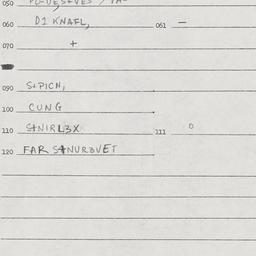 050
060 D1 KNAFL, 061 —
070 +
090 S+PICN,
100 CUNG
110 S+NIRL3X 111 0
120 FAR S+NURBVET